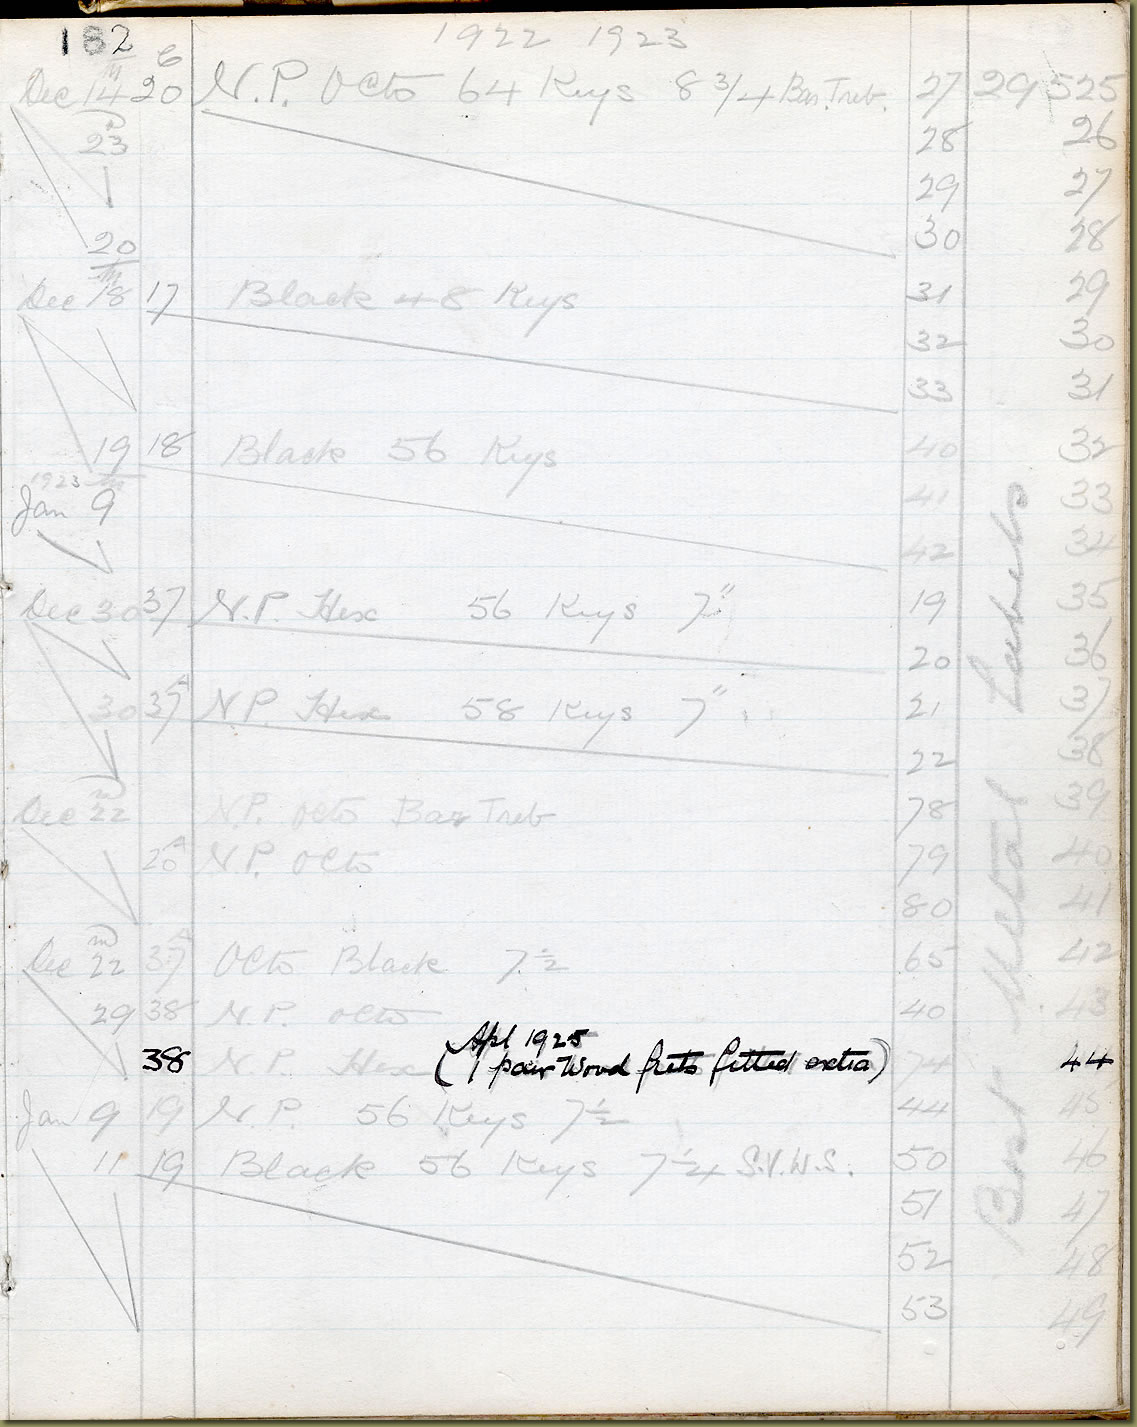 182 1922 1923
6
Dec 14th 20 N.P. Octo 64 Keys 8 3/4 Bas. Treb. 27 29525
23rd 28 26
29 27
20 30 28
Dec 18th 17 Black 48 Keys 31 29
32 30
33 31
19 18 Black 56 Keys 40 32
1923
Jan 9th 41 33
42 34
Dec 30 37 N.P. Hex 56 Keys 7" 19 35
20 36
30 37A N.P. Hex 58 Keys 7" 21 37
22 38
Dec 22nd N.P. Octo Bas Treb 78 39
20A N.P. Octo 79 40
80 41
Dec 22nd 37A Octo Black 7 1/2 65 42
29 38 N.P. Octo 40 43
Apl 1925
38 N.P. Hex (1 pair Wood frets fitted extra) 74 44
Jan 9 19 N.P. 56 Keys 7 1/2 44 45
11 19 Black 56 Keys 7 1/4 S.V.W.S. 50 46
51 47
52 48
53 49
Best Metal Labels